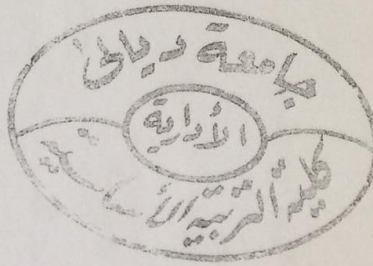 جامعة ديالى
الأدارية
كلية التربية الأساسية